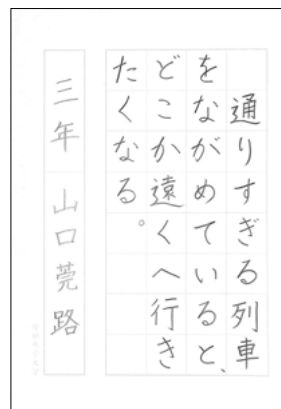 通りすぎる列車
をながめていると、
どこか遠くへ行き
たくなる。
三年 山口莞路